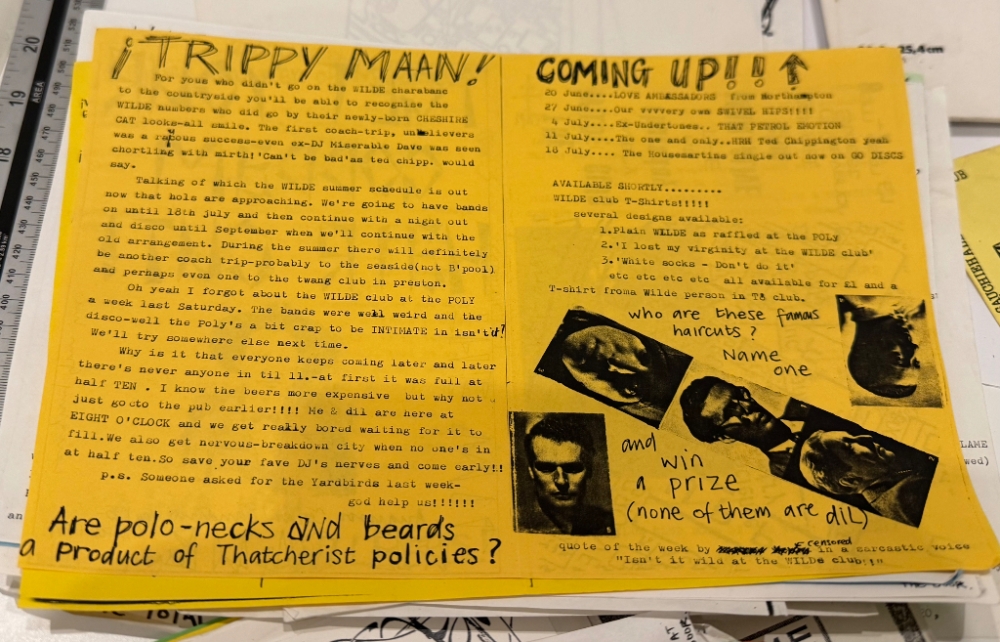 ¡TRIPPY MAAN!
For yous who didn't go on the WILDE charabanc
to the countryside you'll be able to recognise the
WILDE numbers who did go by their newly-born CHESHIRE
CAT looks-all smile. The first coach-trip, unbelievers
was a raucous success-even ex-DJ Miserable Dave was seen
chortling with mirth!'Can't be bad'as ted chipp. would
say.
Talking of which the WILDE summer schedule is out
now that hols are approaching. We're going to have bands
on until 18th july and then continue with a night out
and disco until September when we'll continue with the
old arrangement. During the summer there will definitely
be another coach trip-probably to the seaside(not B'pool)
and perhaps even one to the twang club in preston.
Oh yeah I forgot about the WILDE club at the POLY
a week last Saturday. The bands were well weird and the
disco-well the Poly's a bit crap to be INTIMATE in isn't it?
We'll try somewhere else next time.
Why is it that everyone keeps coming later and later
there's never anyone in til 11.-at first it was full at
half TEN . I know the beers more expensive but why not
just go to the pub earlier!!!! Me & dil are here at
EIGHT O'CLOCK and we get really bored waiting for it to
fill.We also get nervous-breakdown city when no one's in
at half ten.So save your fave DJ's nerves and come early!!
p.s. Someone asked for the Yardbirds last week-
god help us!!!!!!
Are polo-necks AND beards
a product of Thatcherist policies?
COMING UP!!!↑
20 June....LOVE AMBASSADORS from Northampton
27 June....Our vvvvery own SWIVEL HIPS!!!!
4 July....Ex-Undertones.. THAT PETROL EMOTION
11 July....The one and only..HRH Ted Chippington yeah
18 July.... The Housemartins single out now on GO DISCS
AVAILABLE SHORTLY.........
WILDE club T-Shirts!!!!!
several designs available:
1.Plain WILDE as raffled at the POLY
2.'I lost my virginity at the WILDE club'
3.'White socks - Don't do it'
etc etc etc all available for £1 and a
T-shirt froma Wilde person in T& club.
who are these famous
haircuts?
Name
one
and
win
a prize
(none of them are dil)
quote of the week by censored in a sarcastic voice
"Isn't it wild at the WILDe club!!"
20
19
18
AREA
25,4cm